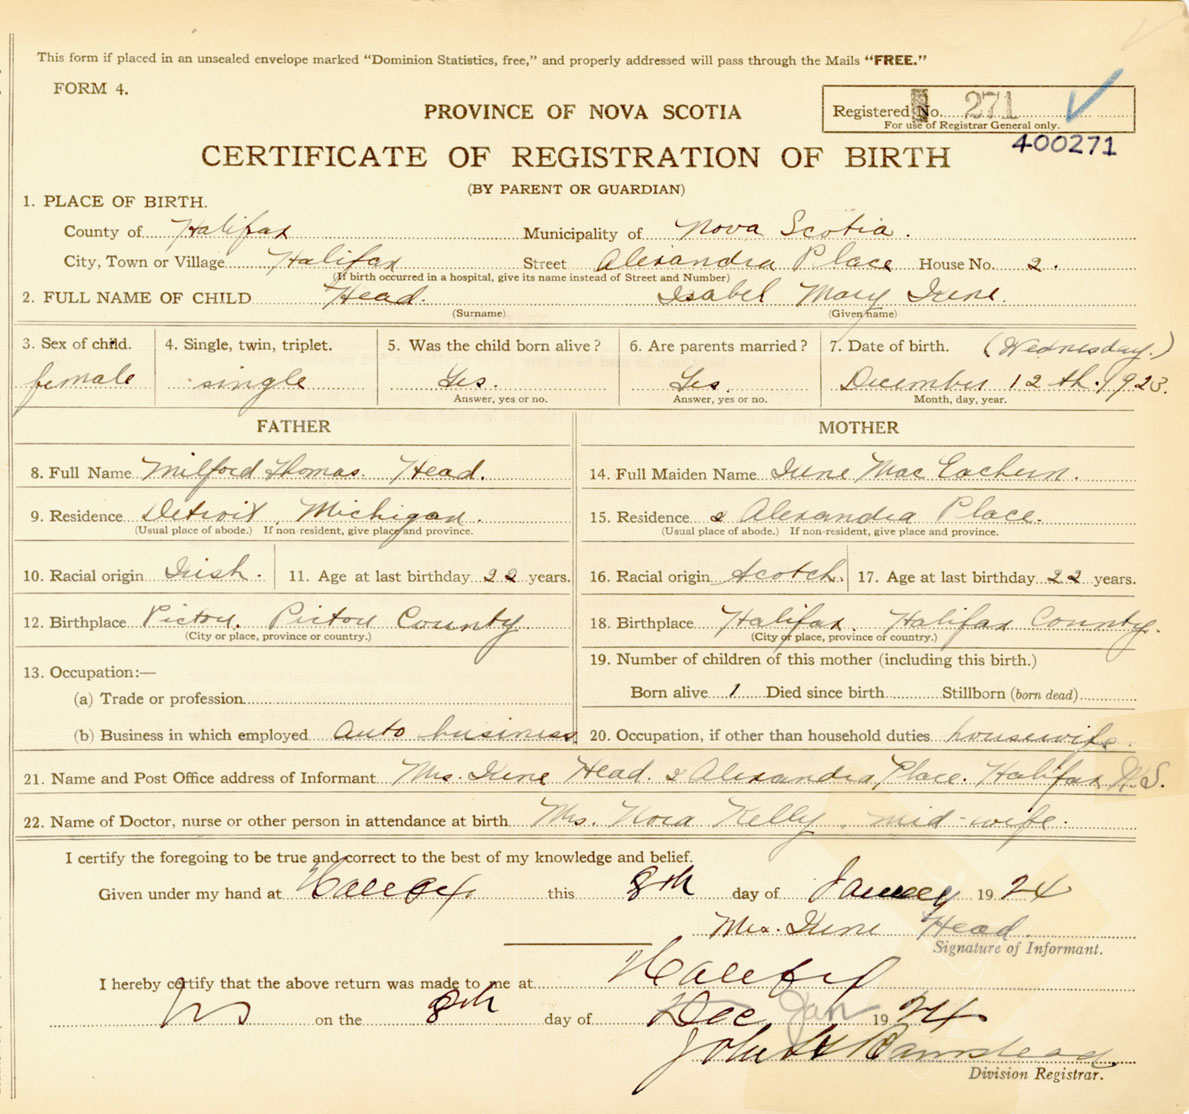 This form if placed in an unsealed envelope marked “Dominion Statistics, free,” and properly addressed will pass through the Mails “FREE.”
FORM 4.
PROVINCE OF NOVA SCOTIA
Registered No. 271
For use of Registrar General only.
400271
CERTIFICATE OF REGISTRATION OF BIRTH
(BY PARENT OR GUARDIAN)
1. PLACE OF BIRTH.
County of Halifax Municipality of Nova Scotia.
City, Town or Village Halifax Street Alexandra Place House No. 2.
(If birth occurred in a hospital, give its name instead of Street and Number)
2. FULL NAME OF CHILD Head. Isabel Mary Irene.
(Surname) (Given name)
3. Sex of child. 4. Single, twin, triplet. 5. Was the child born alive? 6. Are parents married? 7. Date of birth. (Wednesday.)
female single Yes. Yes. December 12th. 1923.
Answer, yes or no. Answer, yes or no. Month, day, year.
FATHER MOTHER
8. Full Name Milford Thomas. Head. 14. Full Maiden Name Irene Mac Eachern.
9. Residence Detroit, Michigan. 15. Residence 2 Alexandra Place.
(Usual place of abode.) If non-resident, give place and province. (Usual place of abode.) If non-resident, give place and province.
10. Racial origin Irish. 11. Age at last birthday 22 years. 16. Racial origin Scotch. 17. Age at last birthday 22 years.
12. Birthplace Pictou. Pictou County 18. Birthplace Halifax. Halifax County.
(City or place, province or country.) (City or place, province or country.)
13. Occupation:— 19. Number of children of this mother (including this birth.)
(a) Trade or profession Born alive 1 Died since birth Stillborn (born dead)
(b) Business in which employed Auto business 20. Occupation, if other than household duties housewife.
21. Name and Post Office address of Informant Mrs. Irene Head. 2 Alexandra Place. Halifax N.S.
22. Name of Doctor, nurse or other person in attendance at birth Mrs. Nora Kelly, mid-wife.
I certify the foregoing to be true and correct to the best of my knowledge and belief.
Given under my hand at Halifax this 8th day of January 1924
Mrs. Irene Head.
Signature of Informant.
I hereby certify that the above return was made to me at Halifax
NS on the 8th day of Dec Jan 1924
John
Division Registrar.